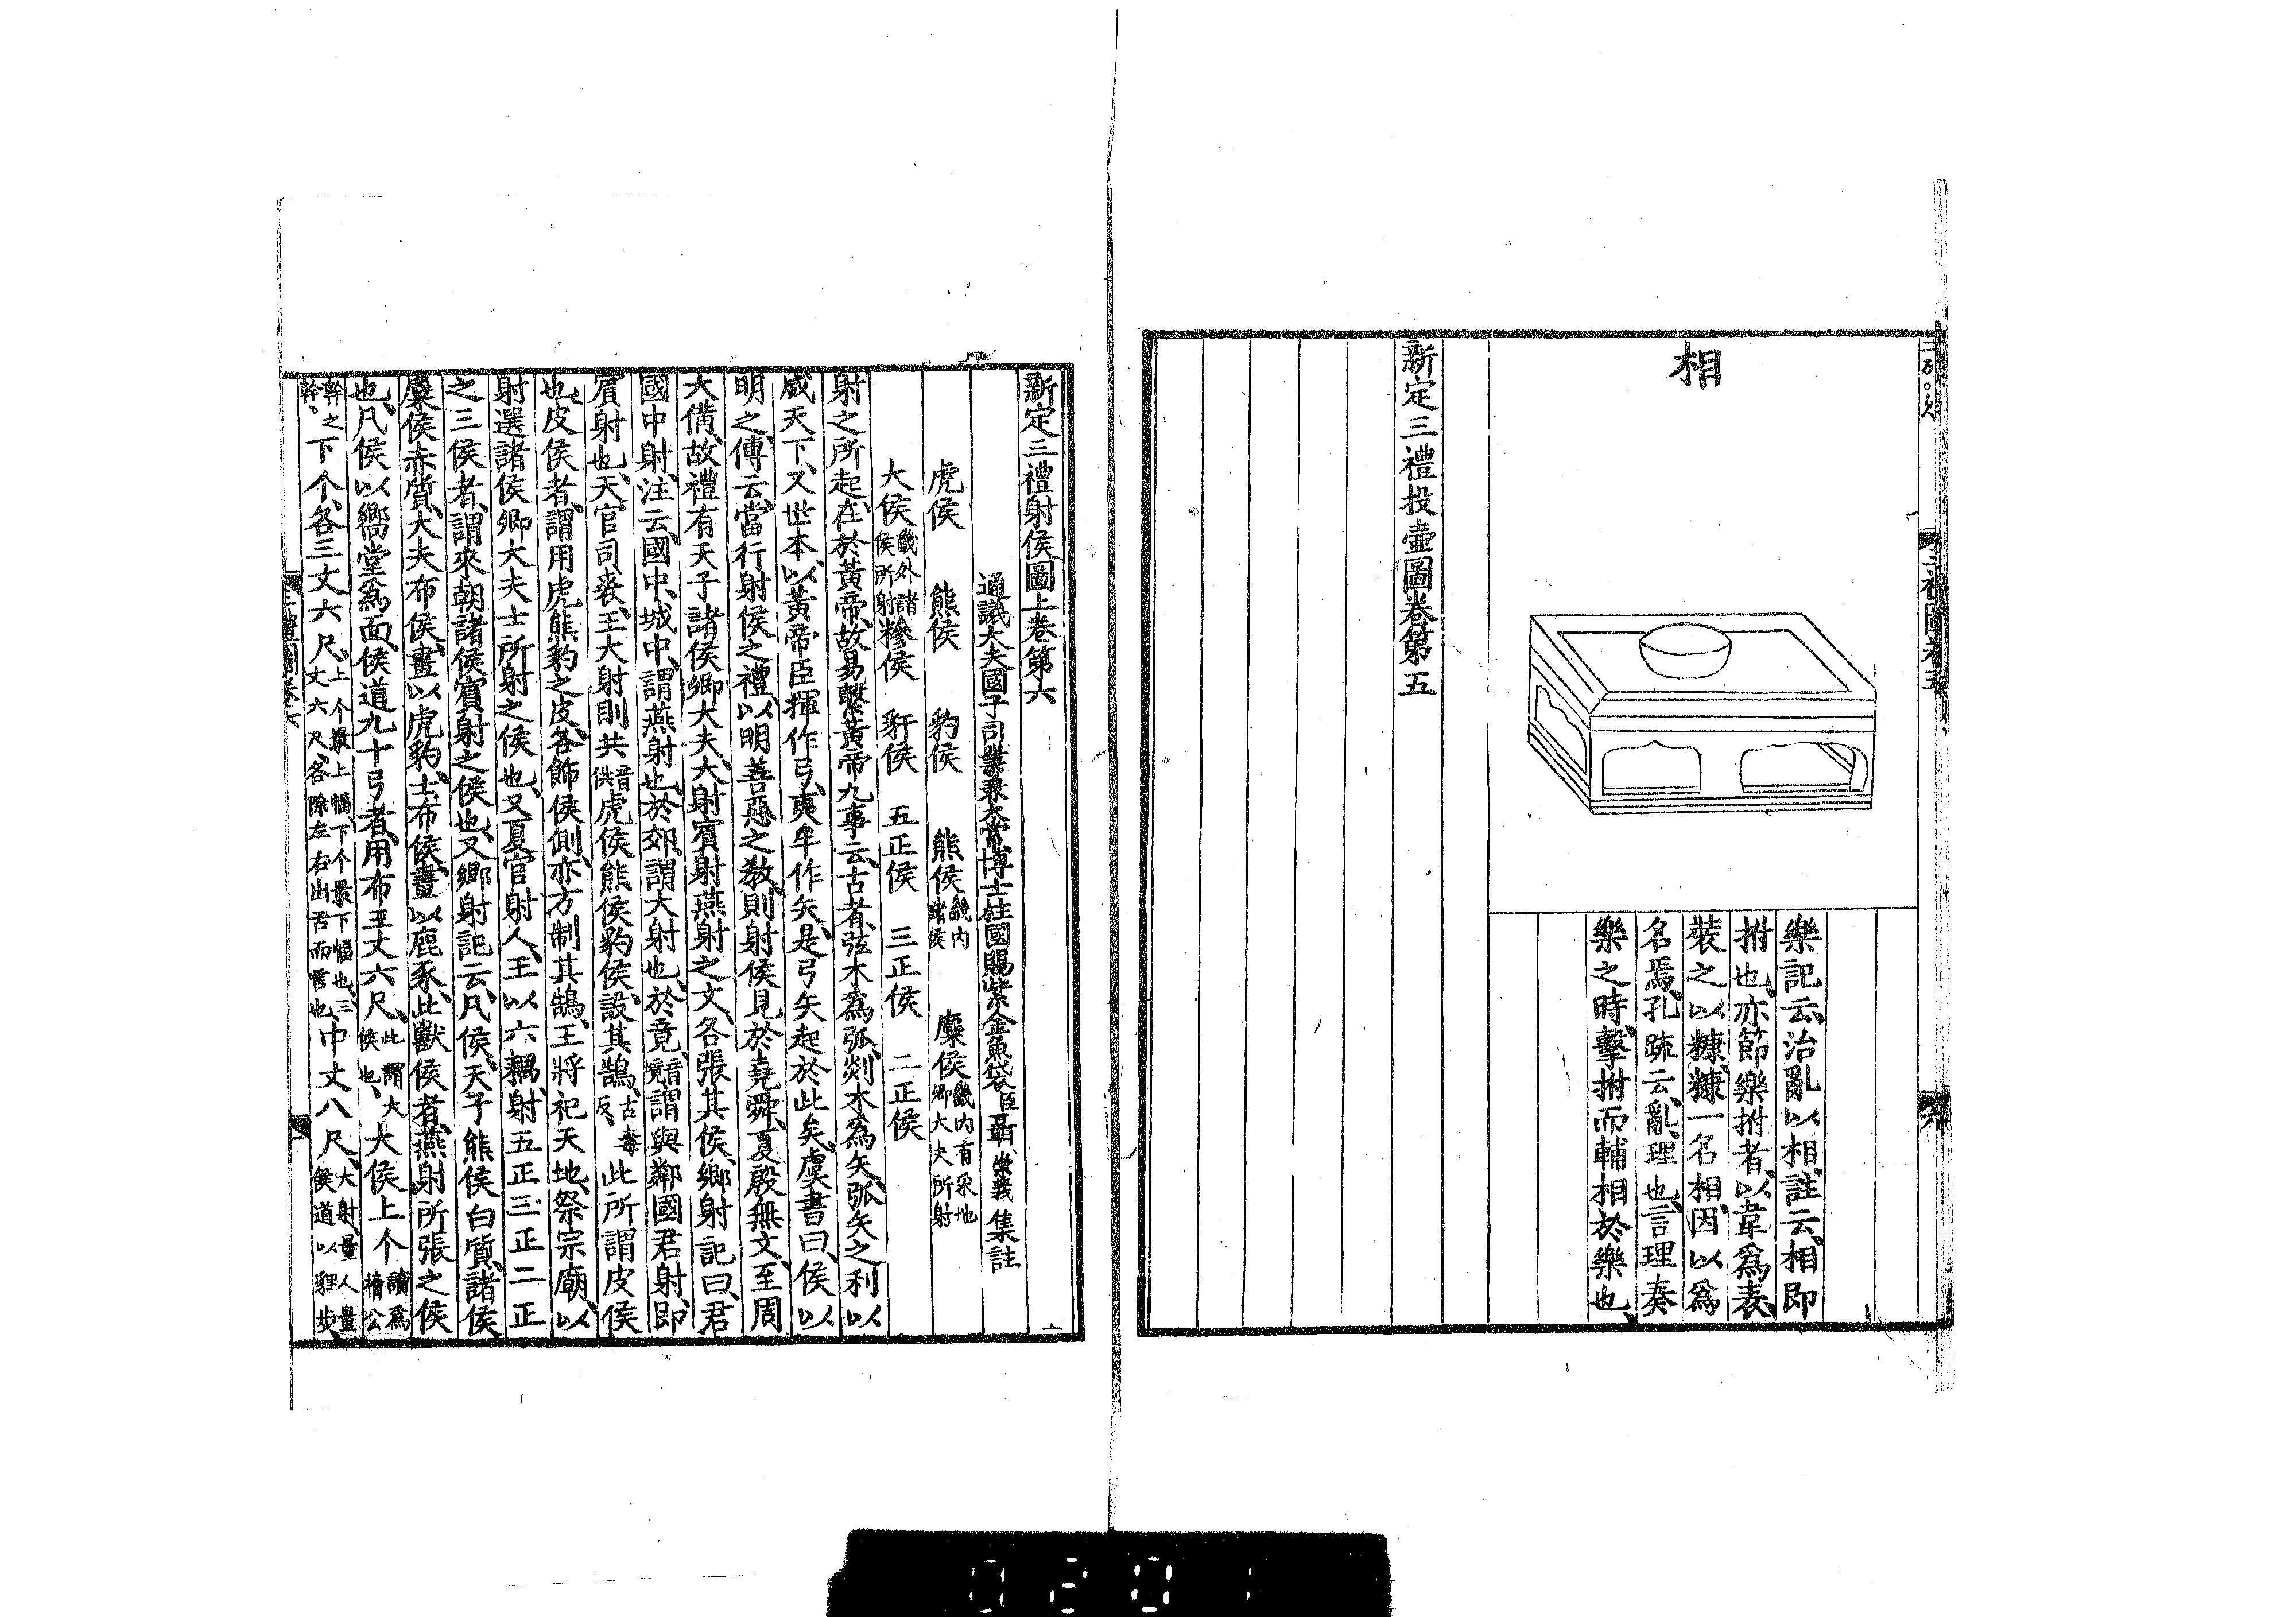 相
樂記云治亂以相註云相即
拊也亦節樂拊者以韋爲表
裝之以糠糠一名相因以爲
名焉孔疏云亂理也言理奏
樂之時擊拊而輔相於樂也
新定三禮投壷圖卷第五
新定三禮射侯圖上卷第六
通議大夫國子司業兼太常博士柱國賜紫金魚袋臣聶崇義集註
虎侯 熊侯 豹侯 熊侯畿内諸侯 麋侯畿内有采地卿大夫所射
大侯畿外諸侯所射 糝侯 豻侯 五正侯 三正侯 二正侯
射之所起在於黃帝故易繫黃帝九事云古者弦木爲弧剡木爲矢弧矢之利以
威天下又世本以黃帝臣揮作弓夷牟作矢是弓矢起於此矣虞書曰侯以
明之傳云當行射侯之禮以明善惡之教則射侯見於堯舜夏殷無文至周
大備故禮有天子諸侯卿大夫大射賓射燕射之文各張其侯鄉射記曰君
國中射注云國中城中謂燕射也於郊謂大射也於竟音境謂與鄰國君射即
賓射也天官司裘王大射則共音供虎侯熊侯豹侯設其鵠古毒反此所謂皮侯
也皮侯者謂用虎熊豹之皮各飾侯側亦方制其鵠王將祀天地祭宗廟以
射選諸侯卿大夫士所射之侯也又夏官射人王以六耦射五正三正二正
之三侯者謂來朝諸侯賓射之侯也又鄉射記云凡侯天子熊侯白質諸侯
麋侯赤質大夫布侯畫以虎豹士布侯畫以鹿豕此獸侯者燕射所張之侯
也凡侯以嚮堂爲面侯道九十弓者用布五丈六尺此謂大侯也大侯上个讀爲
幹之幹下个各三丈六尺上个最上幅下个最下幅也三丈六尺各除左右出舌而言也中丈八尺大射量人量侯道以貍步
0201